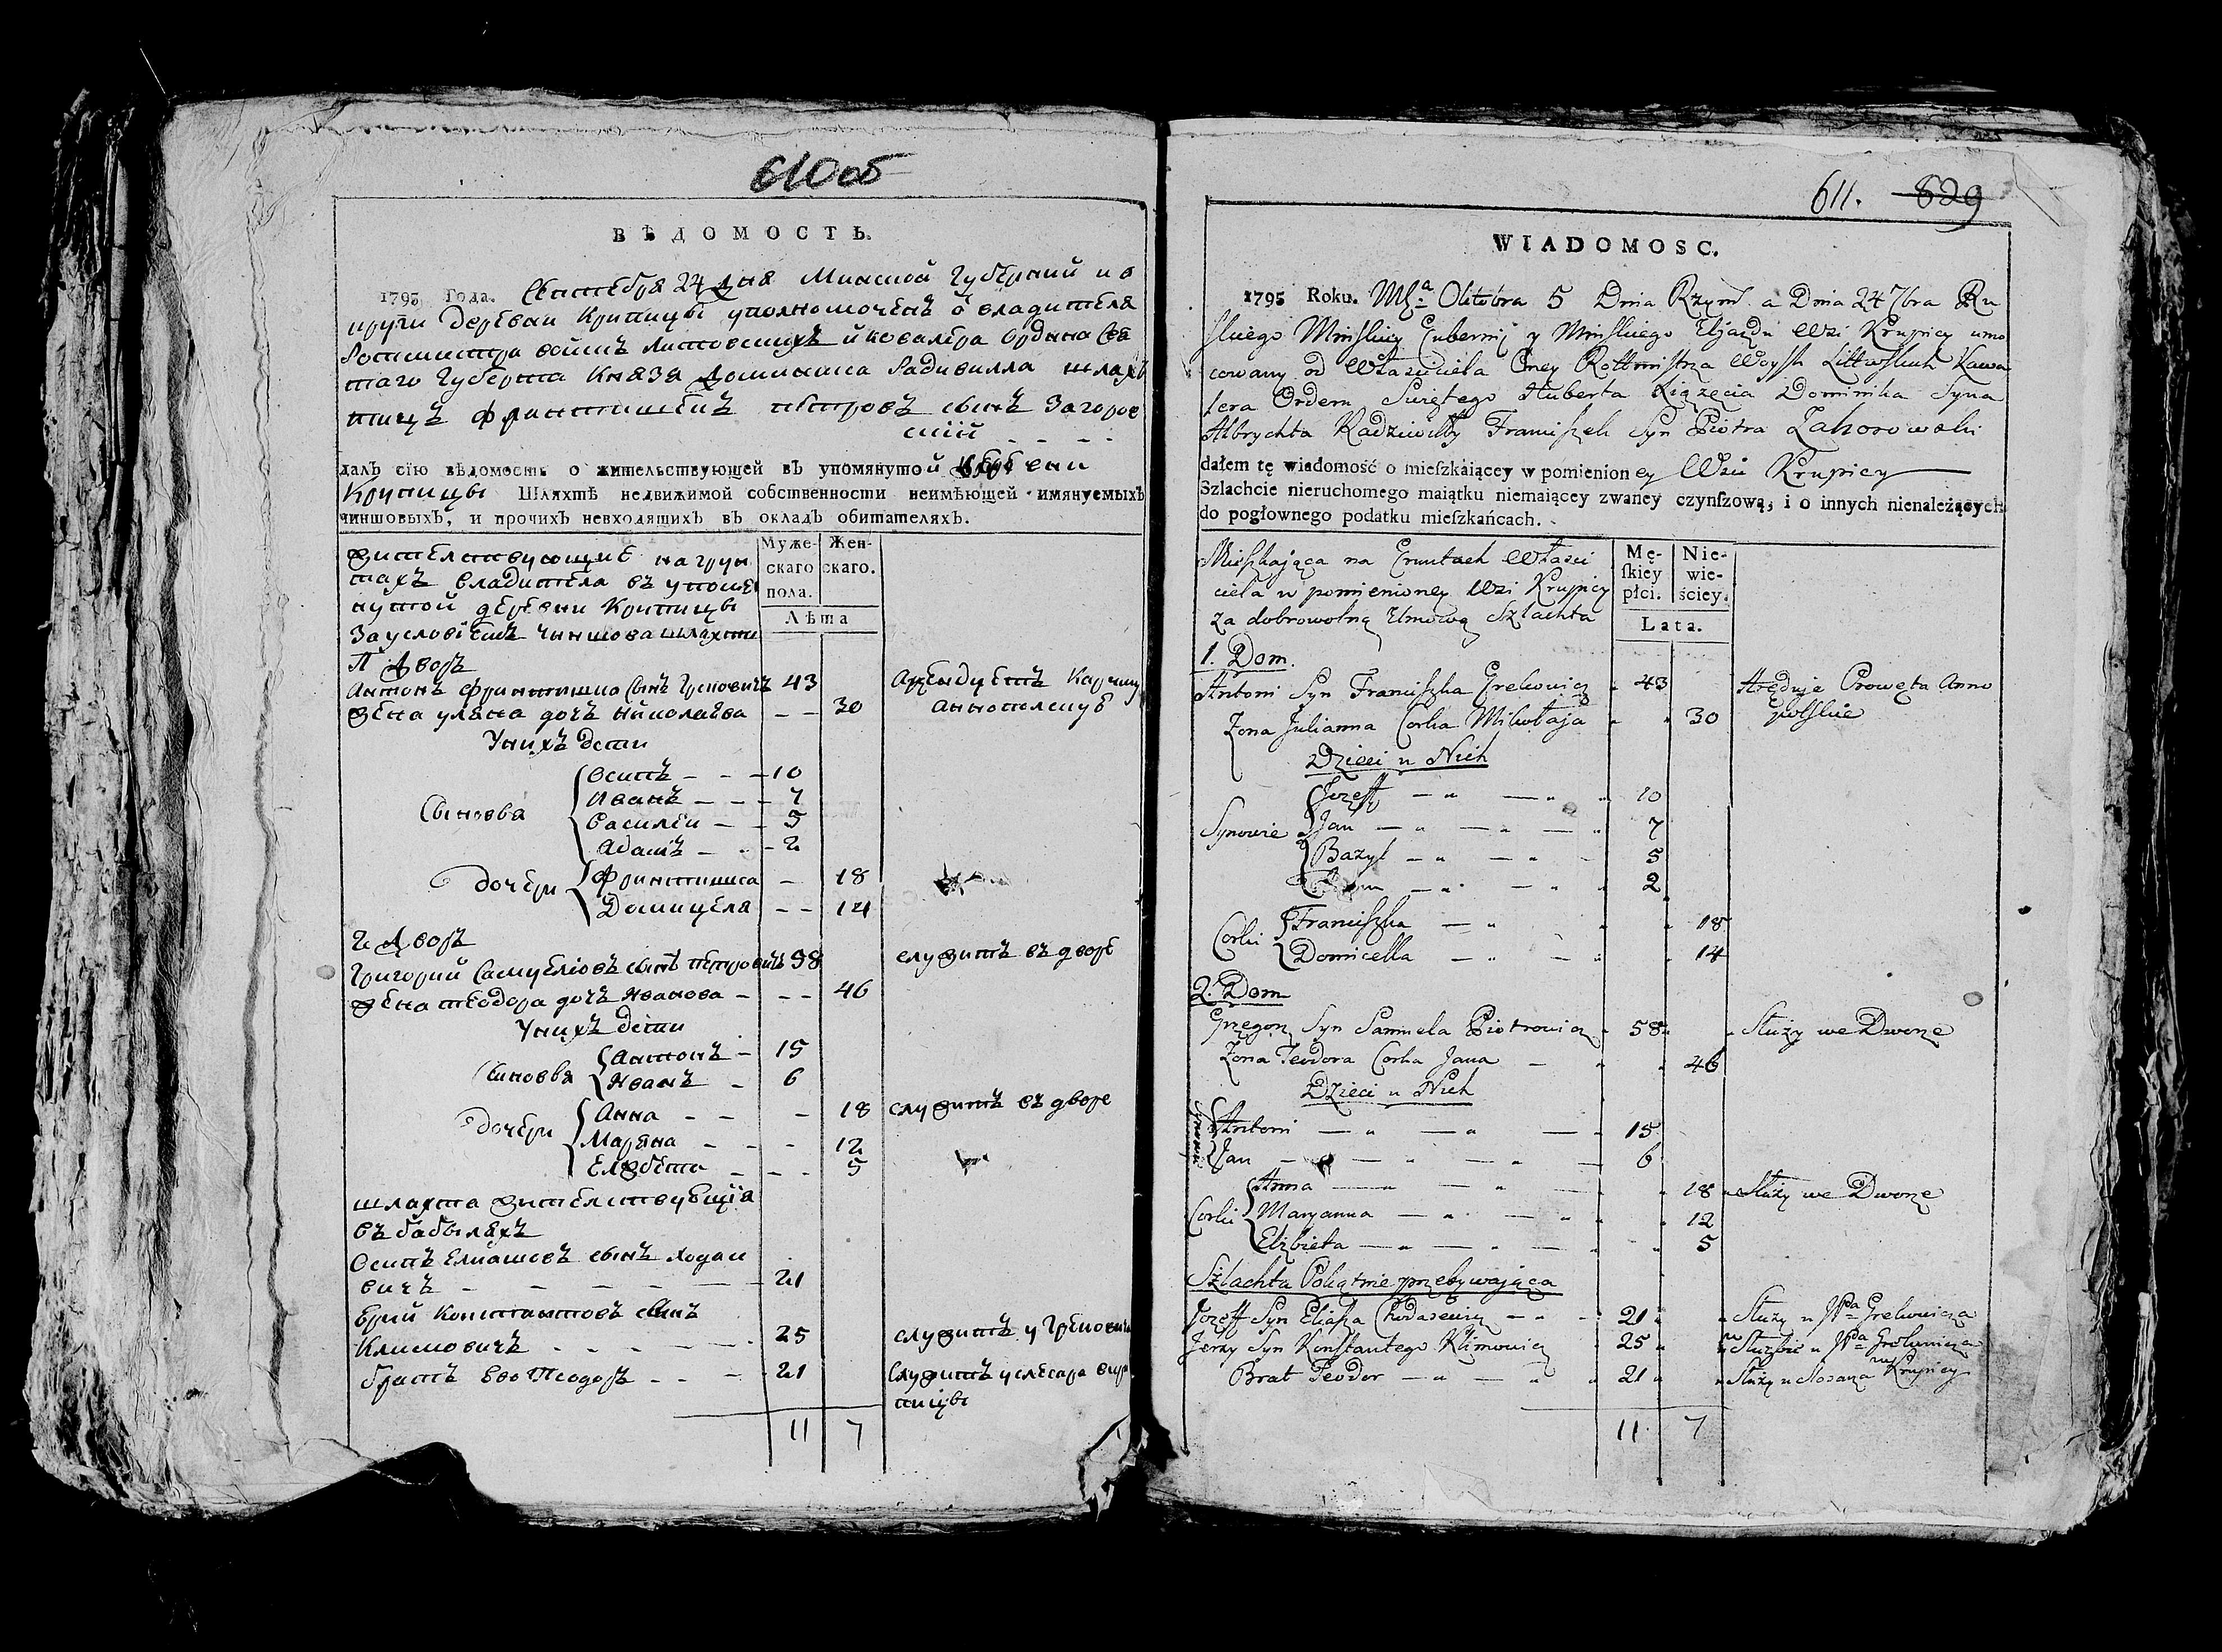 610 об
ВѢДОМОСТЬ.
1795 Года. Сентебря 24 дня Минской Губернии и о
круги деревни Крупицы уполномоченъ о владителя
Ротмистра войскъ литовскихъ и ковалера Ордена Све
таго Губерта Князя Доминика Радивилла шлях
тицъ Францишекъ петровъ сынъ Загоров
скій
далъ сїю вѣдомость о жительствующей въ упомянутой деревни
Крупицы Шляхтѣ недвижимой собственности неимѣющей имянуемыхъ
чиншовыхъ, и прочихъ невходящихъ въ окладъ обитателяхъ.
Муже-скаго пола. Жен-скаго.
Лѣта
жителствующие на грун
тахъ владителя въ упоме
нутой деревни Крупицы
За условіемъ чиншова шляхти
1 Дворъ
Антонъ Францишка Сынъ Грековичъ 43 Арендуетъ Карчму
жена уляна дочъ Николаева 30
У нихъ дети
Сыновья
Осипъ 10
Иванъ 7
Василеи 5
Адамъ 2
дочери
Францишка 18
Домицеля 14
2 Дворъ
Григорий Самуеліовъ сынъ петровичъ 58 служитъ въ дворе
жена теодора дочъ Иванова 46
У нихъ дети
Сыновья
Антонъ 15
Иванъ 6
дочери
Анна 18 служитъ въ дворе
Маряна 12
Елжбета 5
шляхта жителствующія
въ бабыляхъ
Осипъ Елиашовъ сынъ Ходасе
вичъ 21
Ерий Константовъ сынъ
Климовичъ 25 служитъ у Грековича
братъ ево Теодоръ 21 Служитъ у слесара
11 7
611. 829
WIADOMOSC.
1795 Roku. Msca Oktobra 5 Dnia Rzym. a Dnia 24 7bra Ru
skiego Minskiey Guberni y Minskiego Ujazdu Wsi Krupicy umo
cowany od Własciciela Oney Rottmistrza Woysk Littewskich Kawa
lera Ordem Swiętego Huberta Xiązęcia Dominika Syna
Albrychta Radziwiłły Franciszek Syn Piotra Zahorowski
dałem tę wiadomość o mieſzkáiącey w pomienioney Wsi Krupicy
Szlachcie nieruchomego maiątku niemaiącey zwaney czynſzową, i o innych nienależących
do pogłownego podatku mieſzkańcach.
Mę-ſkiey płci. Nie-wie-ściey.
Lata.
Mieszkająca na Gruntach Własci
ciela w pomienioney Wsi Krupicy
za dobrowolną Umową Szlachta
1. Dom.
Antoni Syn Franciszka Grekowicz 43 Aręduje
Zona Julianna Corka Mikołaja 30
Dzieci u Nich
Synowie
Jozeff 10
Jan 7
Bazyl 5
2
Corki
Franciszka 18
Domicella 14
2. Dom
Grzegorz Syn Samuela Piotrowicz 58 Służy we Dworze
Zona Teodora Corka Jana 46
Dzieci u Nich
Synowie
Antoni 15
Jan 6
Corki
Anna 18 Służy we Dworze
Maryanna 12
Elżbieta 5
Szlachta Pokątnie przebywająca
Jozeff Syn Eliasza Chodasewicz 21 Służy u JPa Grekowicza
Jerzy Syn Konstantego Klimowicz 25 w Służbie u JPa Grekowicza
Brat Teodor 21 Służy u Slosarza w Krupicy
11 7